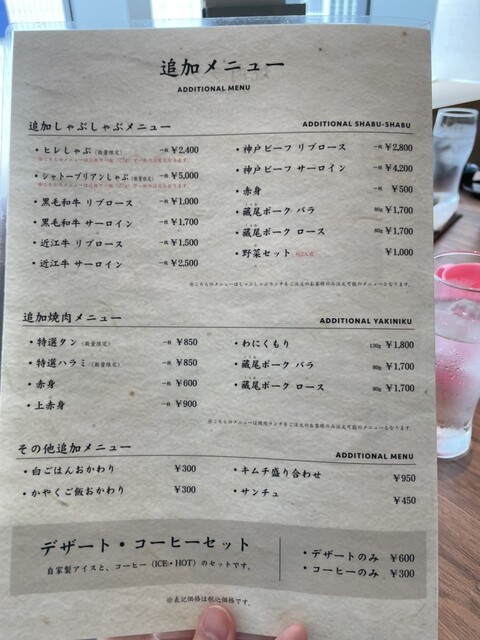 追加メニュー
ADDITIONAL MENU
追加しゃぶしゃぶメニュー ADDITIONAL SHABU-SHABU
・ヒレしゃぶ (数量限定) 一枚 ¥2,400
・シャトーブリアンしゃぶ (数量限定) 一枚 ¥5,000
・黒毛和牛 リブロース 一枚 ¥1,000
・黒毛和牛 サーロイン 一枚 ¥1,700
・近江牛 リブロース 一枚 ¥1,500
・近江牛 サーロイン 一枚 ¥2,500
・神戸ビーフ リブロース 一枚 ¥2,800
・神戸ビーフ サーロイン 一枚 ¥4,200
・赤身 一枚 ¥500
・蔵尾ポーク バラ 80g ¥1,700
・蔵尾ポーク ロース 80g ¥1,700
・野菜セット ¥1,000
※こちらのメニューはしゃぶしゃぶランチをご注文のお客様のみ注文可能のメニューとなります。
追加焼肉メニュー ADDITIONAL YAKINIKU
・特選タン (数量限定) 一枚 ¥850
・特選ハラミ (数量限定) 一枚 ¥850
・赤身 一枚 ¥600
・上赤身 一枚 ¥900
・わにくもり 130g ¥1,800
・蔵尾ポーク バラ 80g ¥1,700
・蔵尾ポーク ロース 80g ¥1,700
※こちらのメニューは焼肉ランチをご注文のお客様のみ注文可能のメニューとなります。
その他追加メニュー ADDITIONAL MENU
・白ごはんおかわり ¥300
・かやくご飯おかわり ¥300
・キムチ盛り合わせ ¥950
・サンチュ ¥450
デザート・コーヒーセット
自家製アイスと、コーヒー（ICE・HOT）のセットです。
・デザートのみ ¥600
・コーヒーのみ ¥300
※表記価格は税込価格です。